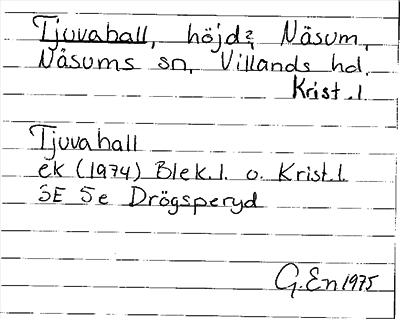 Tjuvahall, höjd? Näsum,
Näsums sn, Villands hd.
Krist. l
Tjuvahall
ek (1974) Blek. l. o. Krist. l.
3E 5e Drögsperyd
G. En 1975